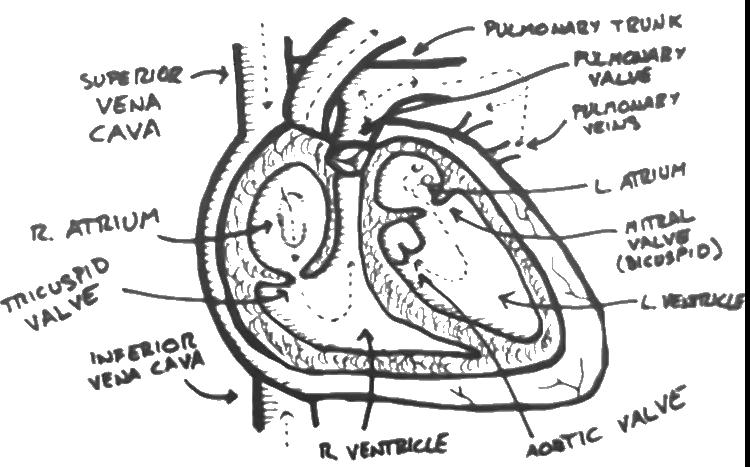 PULMONARY TRUNK
PULMONARY
VALVE
SUPERIOR
VENA
CAVA
PULMONARY
VEINS
L. ATRIUM
R. ATRIUM
MITRAL
VALVE
(BICUSPID)
TRICUSPID
VALVE
L. VENTRICLE
INFERIOR
VENA CAVA
R. VENTRICLE
AORTIC VALVE